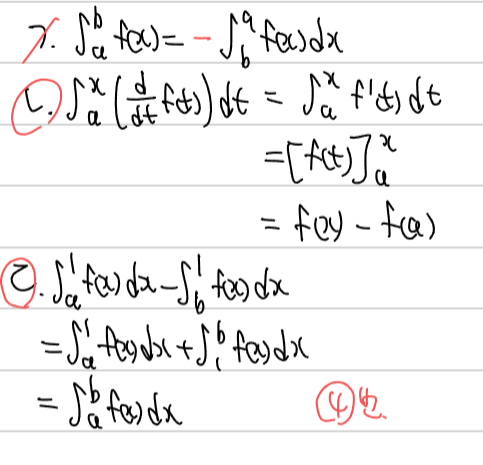 ㄱ. ∫ₐᵇ f(x) = - ∫_b^a f(x)dx
ㄴ. ∫ₐˣ (d/dt f(t)) dt = ∫ₐˣ f'(t) dt
= [f(t)]ₐˣ
= f(x) - f(a)
ㄷ. ∫ₐ¹ f(x) dx - ∫_b^1 f(x) dx
= ∫ₐ¹ f(x) dx + ∫₁ᵇ f(x) dx
= ∫ₐᵇ f(x) dx ④번.